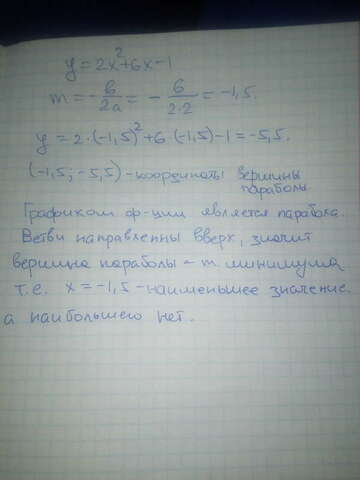 y = 2x²+6x-1
m = -b/2a = -6/2·2 = -1,5.
y = 2·(-1,5)²+6·(-1,5)-1 = -5,5.
(-1,5; -5,5) - координаты вершины
параболы
Графиком ф-ции является парабола.
Ветви направленны вверх, значит
вершина параболы - т. минимума,
т.е. x = -1,5 - наименьшее значение,
а наибольшего нет.